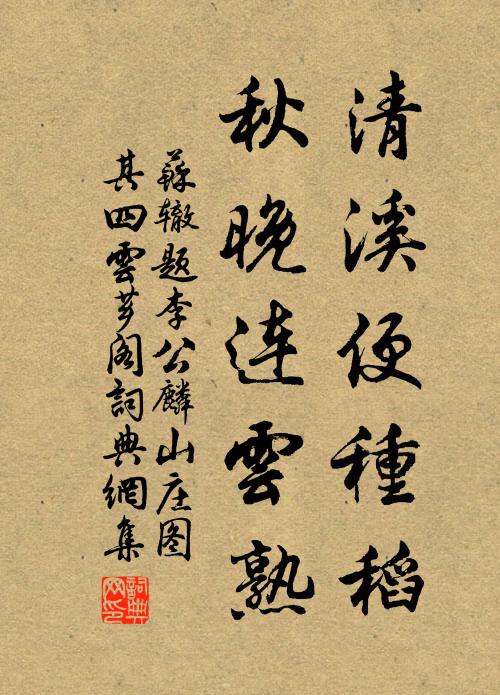 清溪便種稻
秋晚連雲熟
蘇辙题李公麟山庄图
其四雲芗阁詞典網集
詞典网印